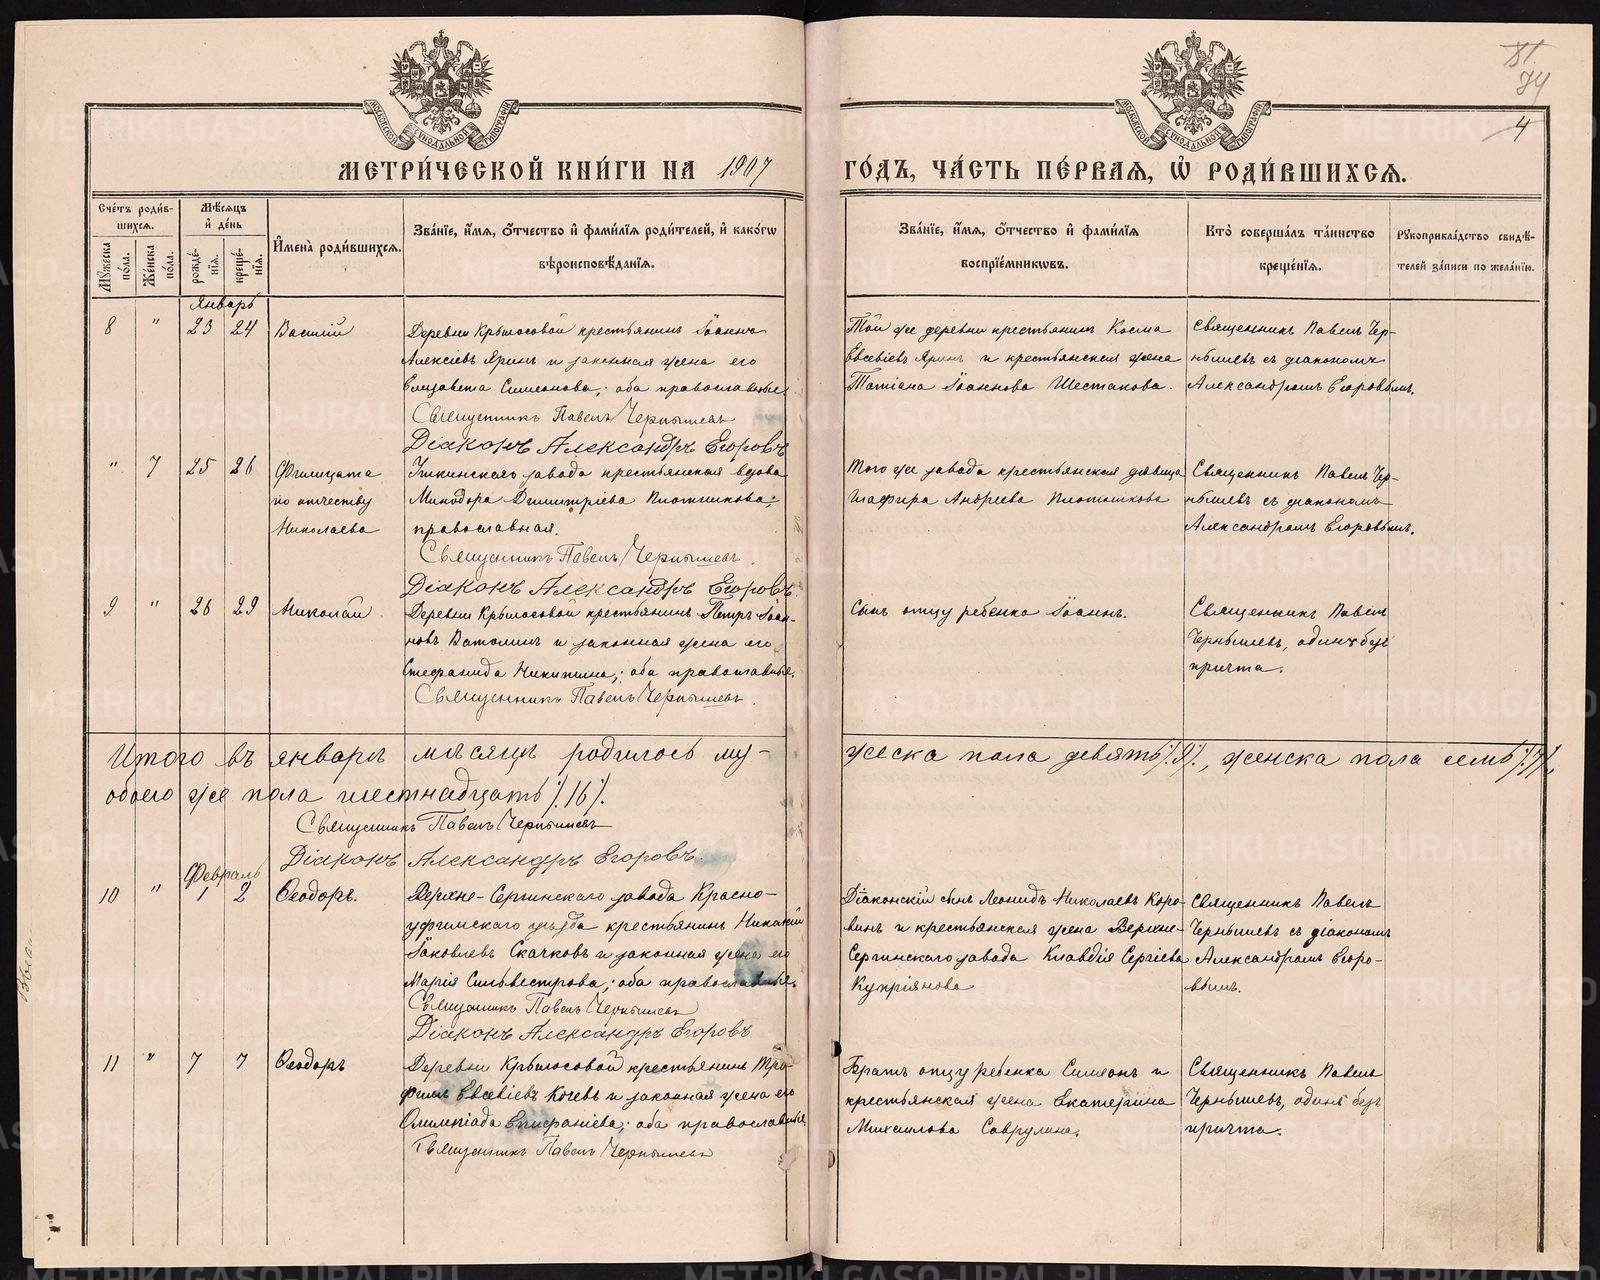 81.
74
4
МОСКОВСКОЙ СѴНОДАЛЬНОЙ ТИПОГРАФІИ
МОСКОВСКОЙ СѴНОДАЛЬНОЙ ТИПОГРАФІИ
МЕТРИ́ЧЕСКОЙ КНИ́ГИ НА 1907 ГО́ДЪ, ЧА́СТЬ ПЕ́РВАѦ, Ѽ РОДИ́ВШИХСѦ.
Сче́тъ роди́в-
шихсѧ.
Мꙋ́жеска по́ла.
Же́нска по́ла.
Мѣ́сѧцъ
и҆ де́нь
рожде́-
нїѧ.
креще́-
нїѧ.
И҆мена̀ роди́вшихсѧ.
Зва́нїе, и҆́мѧ, ѻ҆́тчество и҆ фами́лїѧ роди́телей, и҆ како́гѡ
вѣроисповѣ́данїѧ.
Зва́нїе, и҆́мѧ, ѻ҆́тчество и҆ фами́лїѧ
воспрїе́мникѡвъ.
Кто̀ соверша́лъ та́инство
креще́нїѧ.
Рꙋкоприкла́дство свидѣ́-
телей за́писи по жела́нїю.
Январь
8 " 23 24 Василій
Деревни Крылосовой крестьянинъ Іоаннъ
Алексіевъ Яринъ и законная жена его
Елизавета Симеонова; оба православные.
Священникъ Павелъ Чернышевъ
Діаконъ Александръ Егоровъ
Той же деревни крестьянинъ Косма
Евсевіевъ Яринъ и крестьянская жена
Татіана Іоаннова Шестакова.
Священникъ Павелъ Чер-
нышевъ съ діакономъ
Александромъ Егоровымъ.
" 7 25 26 Филицата
по отчеству
Николаева
Уткинскаго завода крестьянская вдова
Минодора Димитріева Плотникова;
православная.
Священникъ Павелъ Чернышевъ.
Діаконъ Александръ Егоровъ
Того же завода крестьянская дѣвица
Глафира Андреева Плотникова
Священникъ Павелъ Чер-
нышевъ съ діакономъ
Александромъ Егоровымъ.
9 " 26 29 Николай
Деревни Крылосовой крестьянинъ Петръ Іоан-
новъ Ватолинъ и законная жена его
Стефанида Никитина; оба православные.
Священникъ Павелъ Чернышевъ.
Сынъ отцу ребенка Іоаннъ.
Священникъ Павелъ
Чернышевъ, одинъ безъ
причта.
Итого въ январѣ мѣсяцѣ родилось му-
жеска пола девять /.9/., женска пола семь /.7/.,
обоего же пола шестнадцать /.16/.
Священникъ Павелъ Чернышевъ
Діаконъ Александръ Егоровъ.
Февраль
10 " 1 2 Ѳеодоръ.
Верхне-Сергинскаго завода Красно-
уфимскаго уѣзда крестьянинъ
Іаковлевъ Скачковъ и законная жена его
Марія Сильвестрова; оба православные.
Священникъ Павелъ Чернышевъ
Діаконъ Александръ Егоровъ
Діаконскій сынъ Леонидъ Николаевъ Коро-
винъ и крестьянская жена Верхне-
Сергинскаго завода Клавдія Сергіева
Купріянова
Священникъ Павелъ
Чернышевъ съ діакономъ
Александромъ Егоро-
вымъ.
11 " 7 7 Ѳеодоръ
Деревни Крылосовой крестьянинъ Тро-
фимъ Евсевіевъ Кочевъ и законная жена его
Олимпіада Епифаніева; оба православные
Священникъ Павелъ Чернышевъ
Братъ отцу ребенка Симеонъ и
крестьянская жена Екатерина
Михаилова Саврулина.
Священникъ Павелъ
Чернышевъ, одинъ безъ
причта.
METRIKI.GASO-URAL.RU